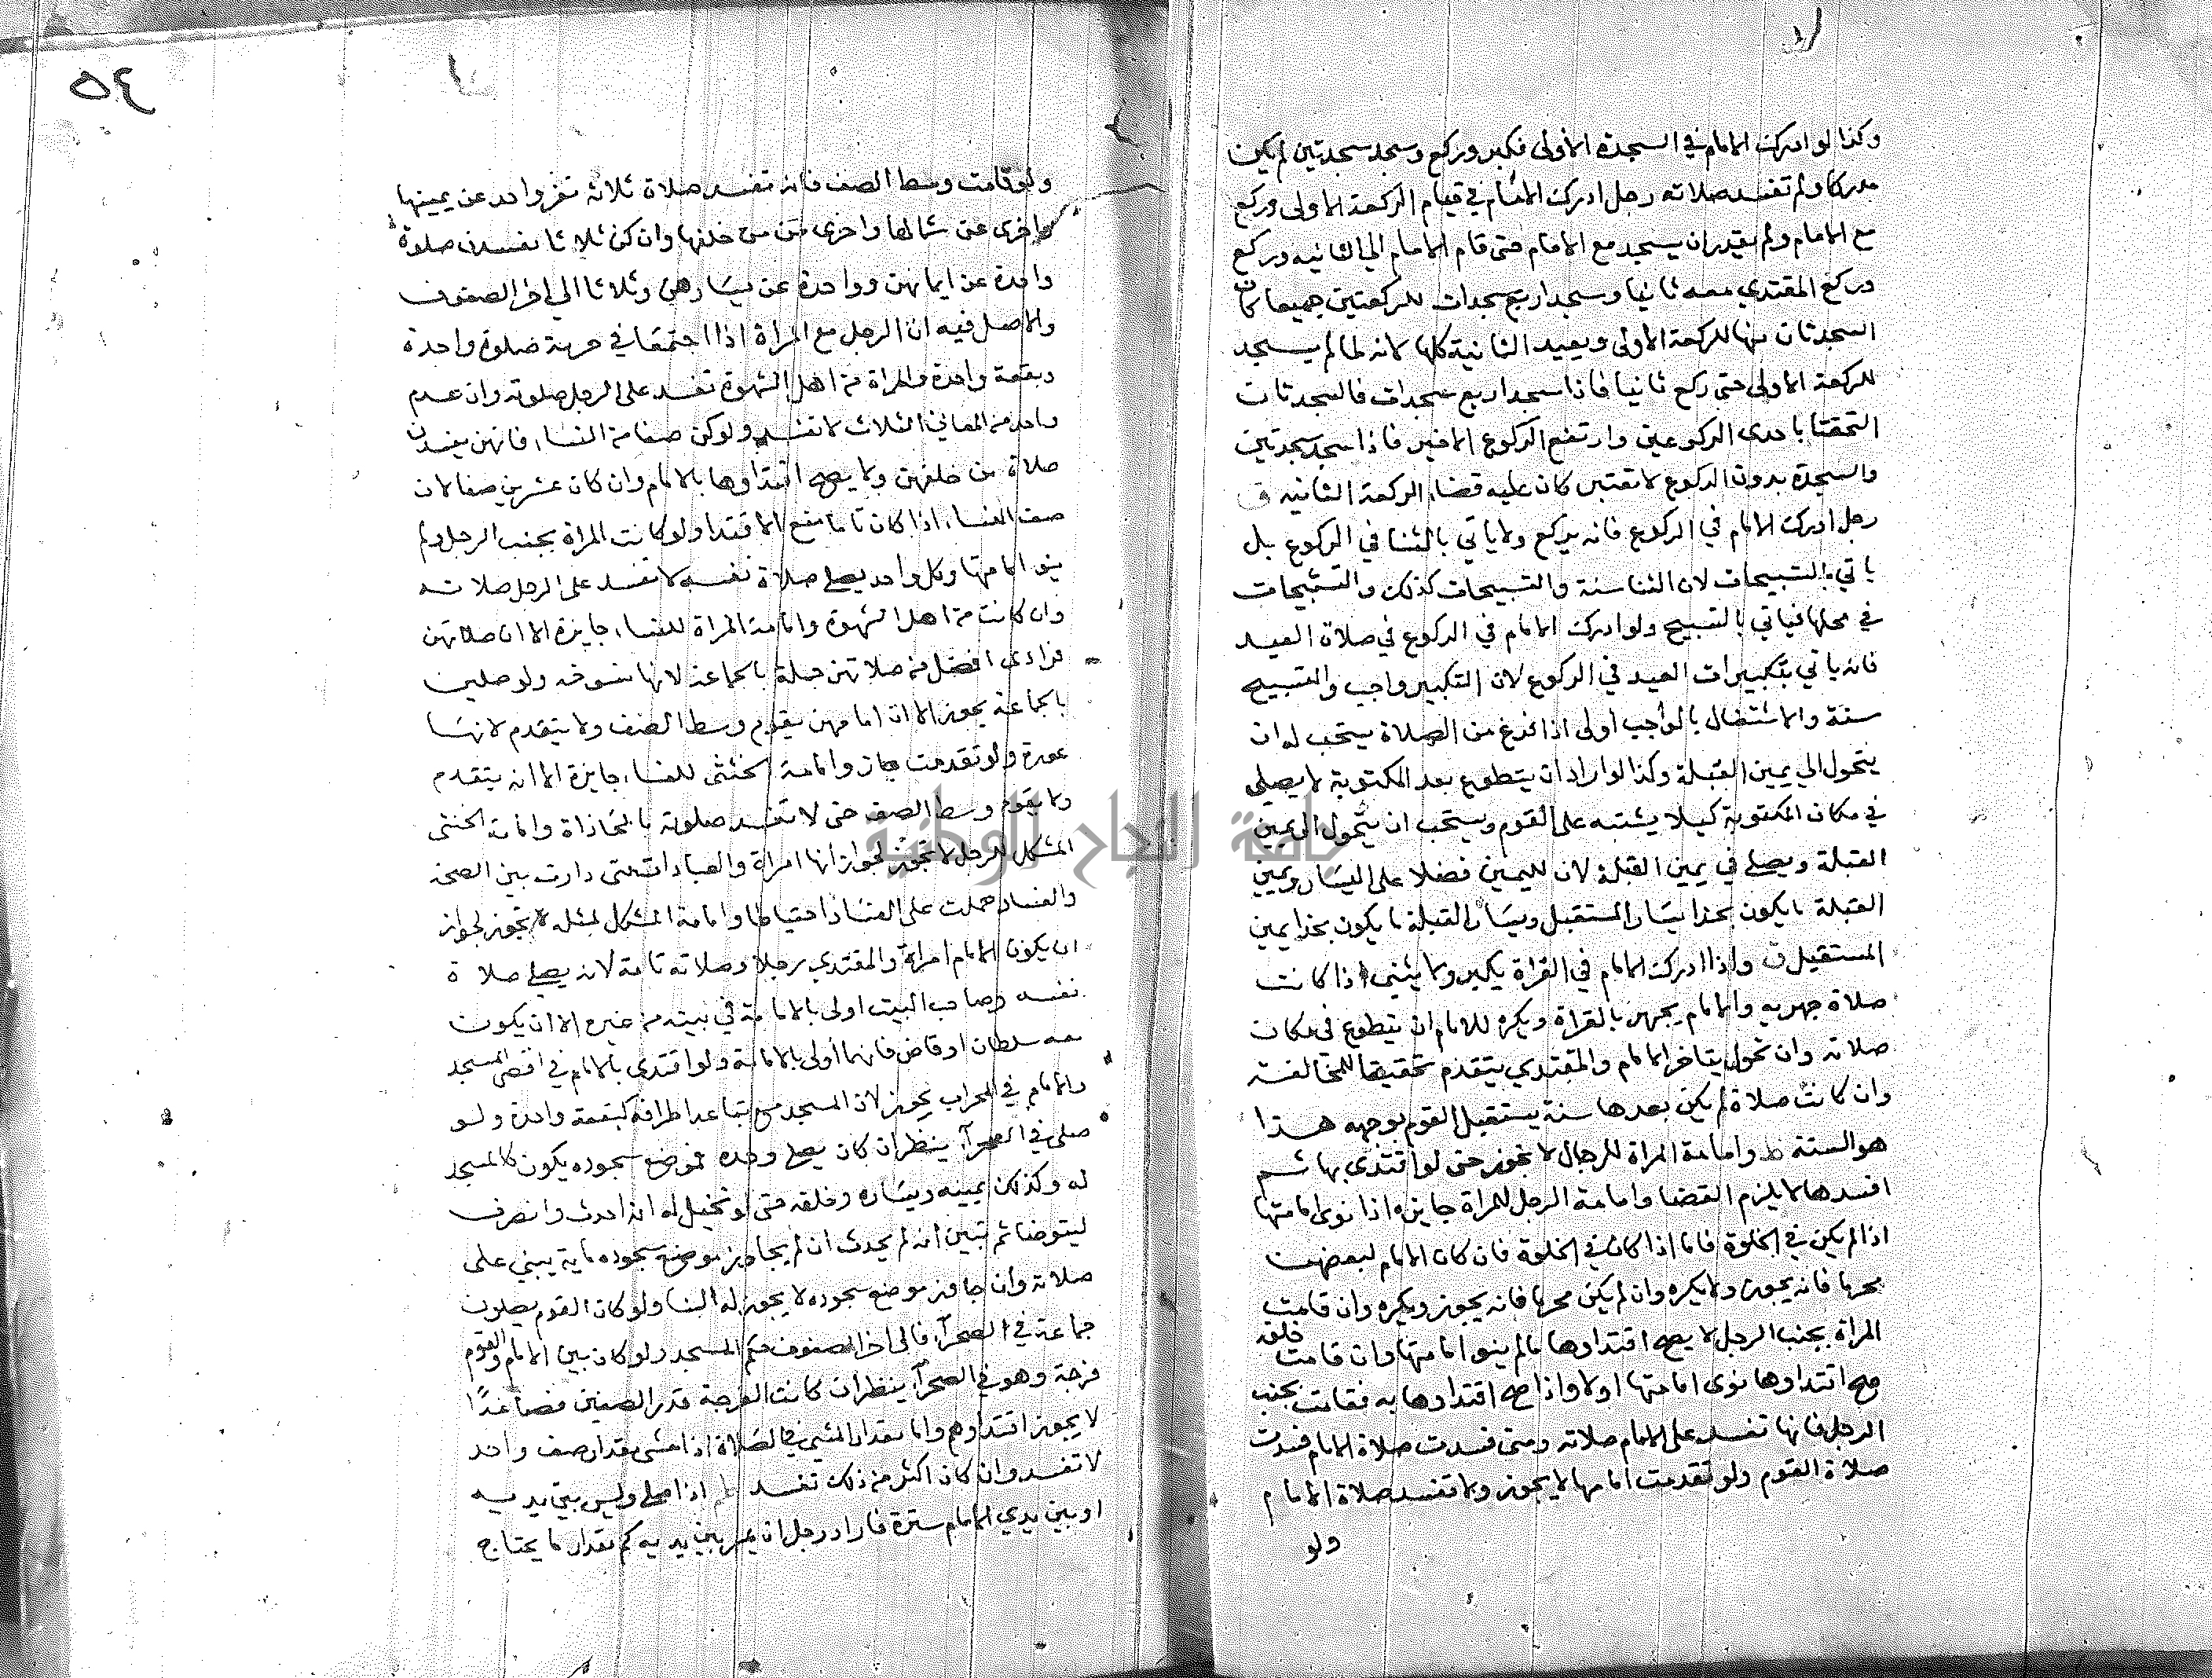 وكذا لو ادرك الامام في السجدة الاولى فكبر وركع وسجد سجدتين لم يكن
مدركا ولم تفسد صلاته رجل ادرك الامام في قيام الركعة الاولى وركع
مع الامام ولم يقدر ان يسجد مع الامام حتى قام الامام الي الثانيه وركع
وركع المقتدي معه ثانيا وسجد اربع سجدات للركعتين جميعا كان
السجدتان منها للركعة الاولى ويعيد الثانية كلها لانه لما لم يسجد
للركعة الاولى حتى ركع ثانيا فاذا سجد اربع سجدات فالسجدتان
التحقتا باحدى الركوعين وارتفع الركوع الاخير فاذا سجد سجدتين
والسجدة بدون الركوع لا تعتبر كان عليه قضاء الركعة الثانيه ق
رجل ادرك الامام في الركوع فانه يركع ولا ياتي بالثنا في الركوع بل
ياتي بالتسبيحات لان الثنا سنة والتسبيحات كذلك والتسبيحات
في محلها فياتي بالتسبيح ولو ادرك الامام في الركوع في صلاة العيد
فانه ياتي بتكبيرات العيد في الركوع لان التكبير واجب والتسبيح
سنة والاشتغال بالواجب اولى اذا فرغ من الصلاة يستحب له ان
يتحول الي يمين القبلة وكذا لو اراد ان يتطوع بعد المكتوبة لا يصلي
في مكان المكتوبة كيلا يشتبه على القوم ويستحب ان يتحول الى يمين
القبلة ويصلي في يمين القبلة لان لليمين فضلا على اليسار ويمين
القبلة ما يكون بحذا يسار المستقبل ويسار القبلة ما يكون بحذا يمين
المستقبل ق واذا ادرك الامام في القراة يكبر ولا يثني اذا كانت
صلاة جهريه والامام يجهر بالقراة ويكره للامام ان يتطوع في مكان
صلاته وان تحول يتاخر الامام والمقتدي يتقدم تحقيقا للمخالفة
وان كانت صلاة لم يكن بعدها سنة يستقبل القوم بوجهه هذا
هو السنة ط وامامة المراة للرجال لا تجوز حتى لو اقتدى بها ثم
افسدها لا يلزم القضا وامامة الرجل للمراة جايزه اذا نوى امامتها
اذا لم يكن في الخلوة فاما اذا كان في الخلوة فان كان الامام لبعضهن
محرما فانه يجوز ولا يكره وان لم يكن محرما فانه يجوز ويكره وان قامت
المراة بجنب الرجل لا يصح اقتداوها مالم ينو امامتها وان قامت خلفه
صح اقتداوها نوى امامتها اولا واذا صح اقتداوها به فقامت بجنب
الرجل فانها تفسد على الامام صلاته ومتى فسدت صلاة الامام فسدت
صلاة القوم ولو تقدمت امامها لا يجوز ولا تفسد صلاة الامام
ولو
ولو قامت وسط الصف فانه تفسد صلاة ثلاثة نفر واحد عن يمينها
واخرى عن شمالها واخرى من خلفها وان كن ثلاثا تفسدن صلاة
واحدة عن ايمانهن وواحدة عن يسارهن وثلاثا الي اخر الصفوف
والاصل فيه ان الرجل مع المراة اذا اجتمعا في حرمة صلوة واحدة
وبقعة واحدة والمراة من اهل الشهوة تفسد على الرجل صلوته وان عدم
واحد من المعاني الثلاث لا تفسد ولو كن صفا من النساء فانهن يفسدن
صلاة من خلفهن ولا يصح اقتداوها بالامام وان كان عشرين صفا لان
صف النساء اذا كان تاما منع الاقتدا ولو كانت المراة بجنب الرجل ولم
ينو امامتها وكل واحد يصلي صلاة نفسه لا تفسد على الرجل صلاته
وان كانت من اهل الشهوة وامامة المراة للنساء جايزة الا ان صلاتهن
فرادى افضل من صلاتهن جملة بالجماعة لانها منسوخه ولو صلين
بالجماعة يجوز الا ان امامهن يقوم وسط الصف ولا يتقدم لانها
عورة ولو تقدمت جاز وامامة الخنثى للنساء جايزة الا انه يتقدم
ولا يقوم وسط الصف حتى لا تفسد صلوته بالمحاذاة وامامة الخنثى
المشكل للرجل لا تجوز لجواز انها امراة والعبادات متى دارت بين الصحة
والفساد حملت على الفساد احتياطا وامامة المشكل لمثله لا تجوز لجواز
ان يكون الامام امراة والمقتدي رجلا وصلاته تامة لانه يصلي صلاة
نفسه وصاحب البيت اولى بالامامة في بيته من غيره الا ان يكون
معه سلطان او قاض فانهما أولى بالامامة ولو اقتدى بالامام في اقصى المسجد
والامام في المحراب يجوز لان المسجد مع تباعد اطرافه كبقعة واحدة ولو
صلى في الصحرآء ينظر ان كان يصلي وحده فموضع سجوده يكون كالمسجد
له وكذلك يمينه ويساره وخلفه حتى لو تخيل له انه احدث وانصرف
ليتوضا ثم تبين انه لم يحدث ان لم يجاوز موضع سجوده فانه يبني على
صلاته وان جاوز موضع سجوده لا يجوز له البنا ولو كان القوم يصلون
جماعة في الصحرآء فالى اخر الصفوف حكم المسجد ولو كان بين الامام والقوم
فرجة وهو في الصحرآء ينظر ان كانت الفرجة قدر الصفين فصاعدًا
لا يجوز اقتداوهم واما مقدار المشي في الصلاة اذا مشى مقدار صف واحد
لا تفسد وان كان اكثر من ذلك تفسد اذا صلى وليس بين يديه
او بين يدي الامام سترة فاراد رجل ان يمر بين يديه كم مقدار ما يحتاج
جامعة النجاح الوطنية